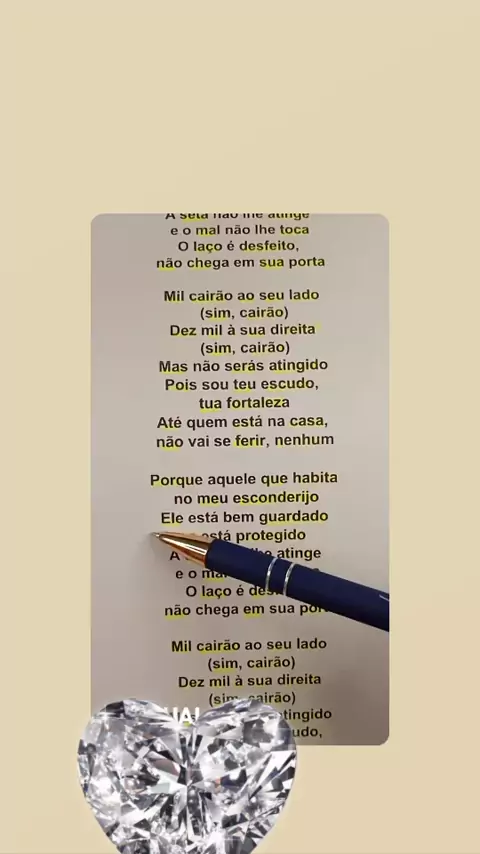 A seta não lhe atinge
e o mal não lhe toca
O laço é desfeito,
não chega em sua porta
Mil cairão ao seu lado
(sim, cairão)
Dez mil à sua direita
(sim, cairão)
Mas não serás atingido
Pois sou teu escudo,
tua fortaleza
Até quem está na casa,
não vai se ferir, nenhum
Porque aquele que habita
no meu esconderijo
Ele está bem guardado
está protegido
A atinge
e o
O laço é
não chega em sua
Mil cairão ao seu lado
(sim, cairão)
Dez mil à sua direita
(sim, cairão)